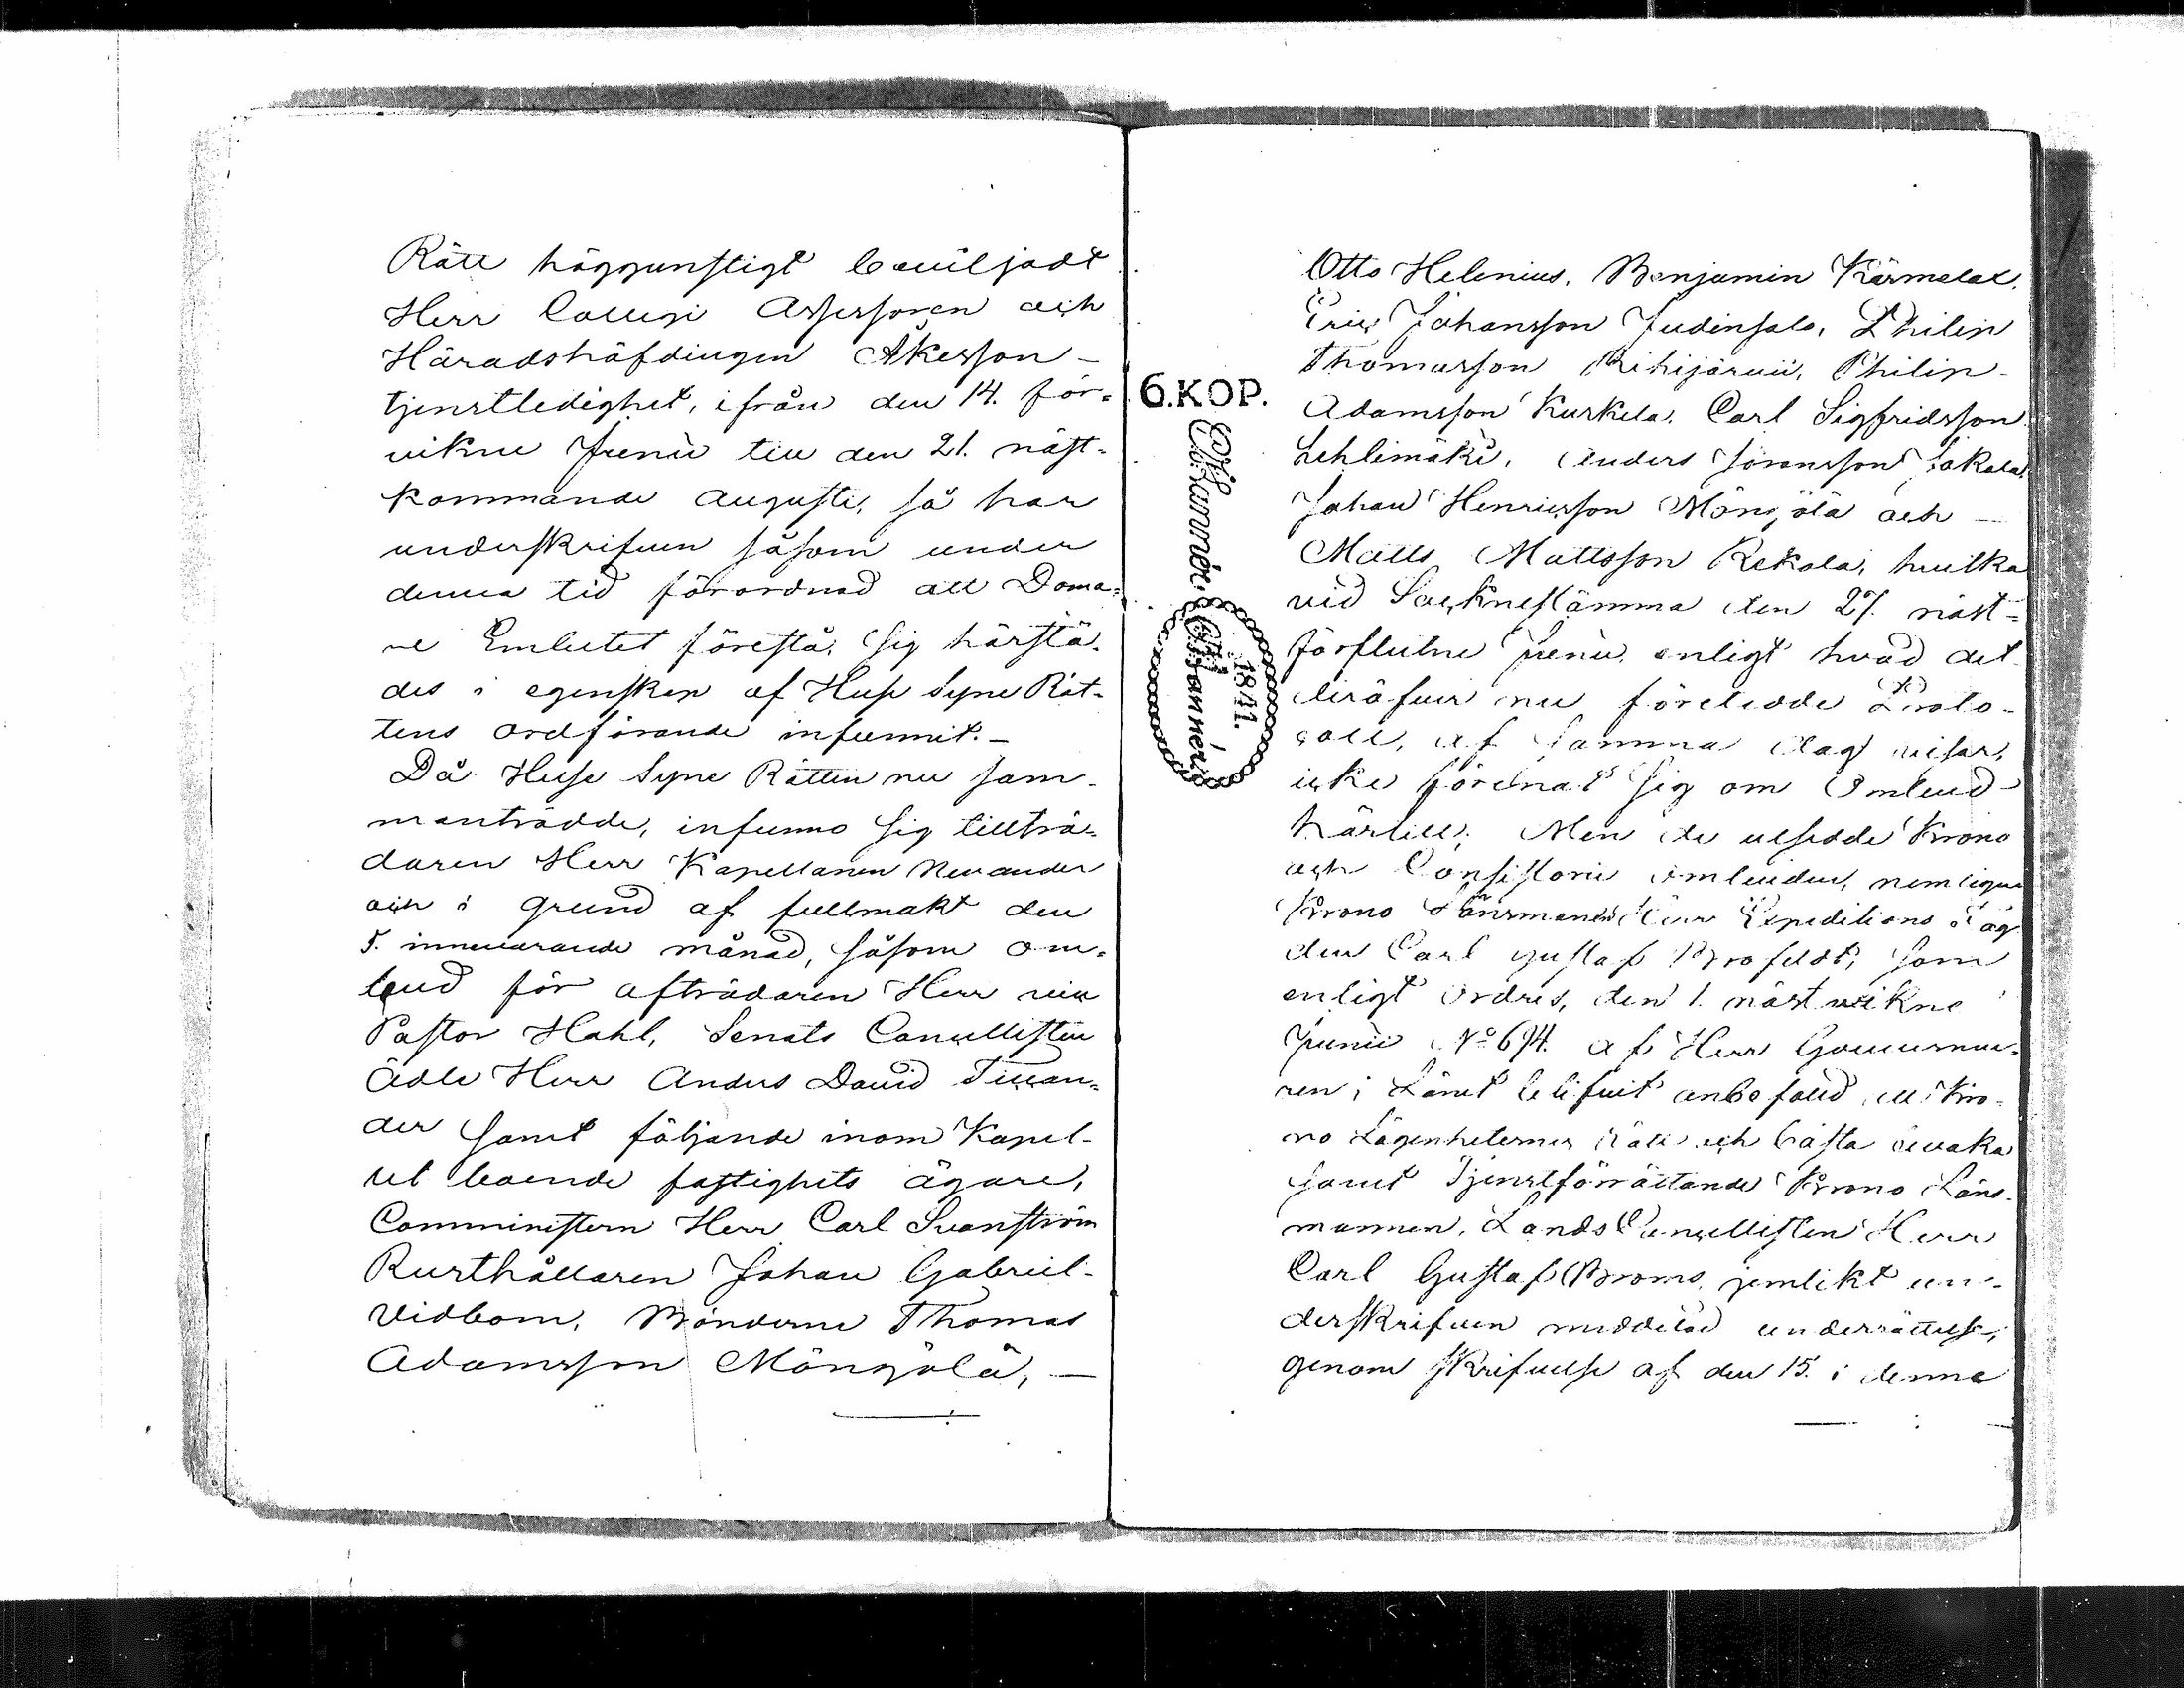 Rätt höggunstigt beviljadt
Herr Collegi Assessoren och
Häradshöfdingen Åkesson -
tjenstledighet, ifrån den 14. för-
vikne Junii till den 21. näst-
kommande Augusti, så har
underskrifven såsom under
denna tid förordnad att Doma-
re Embetet förestå, sig härstä-
des i egenskap af Huse Syne Rät-
tens ordförande infunnit. -
Då Huse Syne Rätten nu sam-
manträdde, infunno sig tillträ-
daren Herr Kapellanen Nevander
och i grund af fullmakt den
5. innevarande månad, såsom om-
bud för afträdaren Herr vice
Pastor Hahl, Senats Cancellisten
Ädle Herr Anders David
samt följande inom Kapel-
let boende fastighets ägare,
Comministern Herr Carl Svanström
Rusthållaren Johan Gabriel -
Vidbom, Bönderne Thomas
Adamsson Möngölä, -
6.KOP.
1841.
Otto Helenius, Benjamin Kärmelat,
Eric Johansson Judinsalo, Philip
Thomasson Rihijärvi, Philip -
Adamsson Kurkela, Carl Sigfridsson
Lehlimäki, Anders Göransson Jakala,
Johan Henricsson Möngölä och -
Matts Mattsson Rekola, hvilka
vid Sockne stämma den 27. näst-
förflutne Junii, enligt hvad det
deröfver nu företedde Proto-
coll, af samma dag visar,
icke förenat sig om Ombud
härtill; Men de utsedde Krono
och Consistorii ombuden, nemligen
Krono Länsmannen Herr Expeditions Fog
den Carl Gustaf Brofeldt, som
enligt Ordres, den 1. nästvikne
Junii No 694. af Herr Gouverneu-
ren i Länet blifvit anbefalld att Kro-
no Lägenheternes rätt och bästa bevaka
samt Tjenstförrättande Krono Läns-
mannen, Lands Cancellisten Herr
Carl Gustaf Broms, jemlikt un-
derskrifven meddelad underrättelse,
genom skrifvelse af den 15. i denne